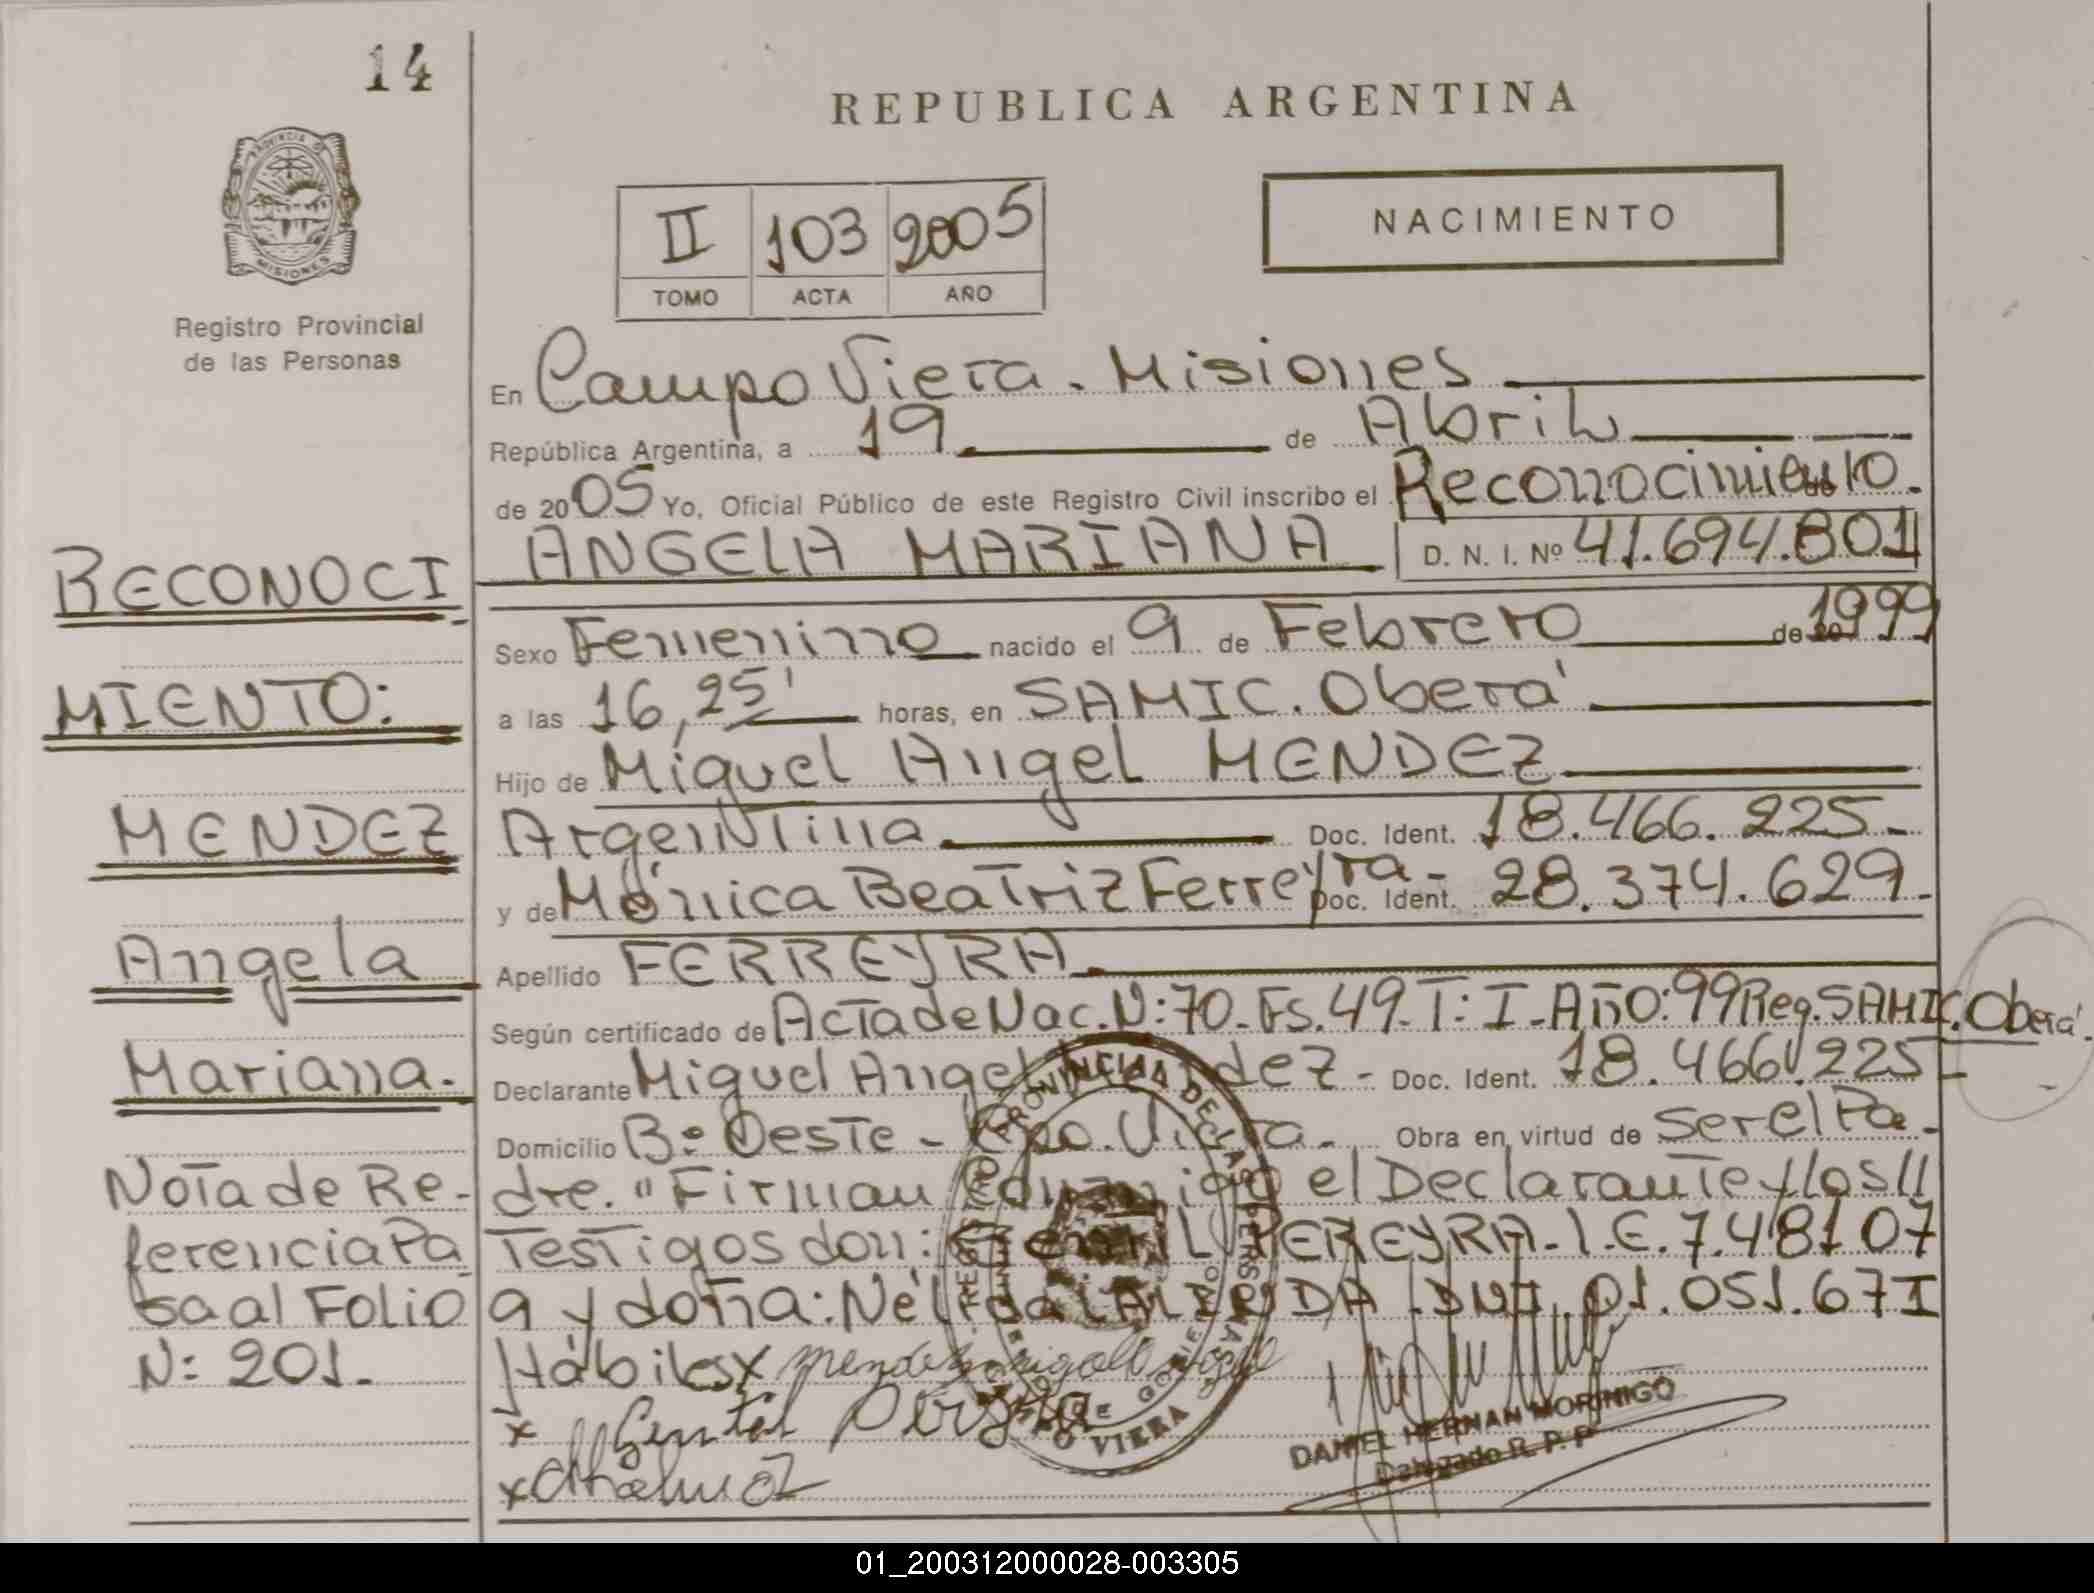 14
REPUBLICA ARGENTINA
PROVINCIA DE
MISIONES
Registro Provincial
de las Personas
II 103 2005
TOMO ACTA AÑO
NACIMIENTO
En Campo Viera. Misiones
República Argentina, a 19 de Abril
de 2005 Yo, Oficial Público de este Registro Civil inscribo el Reconocimiento.
ANGELA MARIANA D. N. I. Nº 41.694.801
Sexo Femenino nacido el 9 de Febrero de 1999
a las 16,25' horas, en SAMIC. Oberá
Hijo de Miguel Angel MENDEZ
Argentina Doc. Ident. 18.466.225-
y de Mónica Beatriz Ferreyra- Doc. Ident. 28.374.629-
Apellido FERREYRA
Según certificado de Acta de Nac. N:70-Fs.49-T:I-Año:99 Reg. SAMIC. Oberá.
Declarante Miguel Angel dez- Doc. Ident. 18.466.225-
Domicilio Bº Oeste - Cpo. Viera. Obra en virtud de ser el Pa-
dre. "Firman conmigo el Declarante y los //
Testigos don: PEREYRA-L.E.7.48107
9 y doña: Nélida DA DNI. 01.051.671
Hábiles x
x
x
RECONOCI
MIENTO:
MENDEZ
Angela
Mariana.
Nota de Re-
ferencia Pa
sa al Folio
N: 201.
PROVINCIA DE
VIERA
DANIEL HERNAN MORINIGO
Delegado R. P. P
01_200312000028-003305